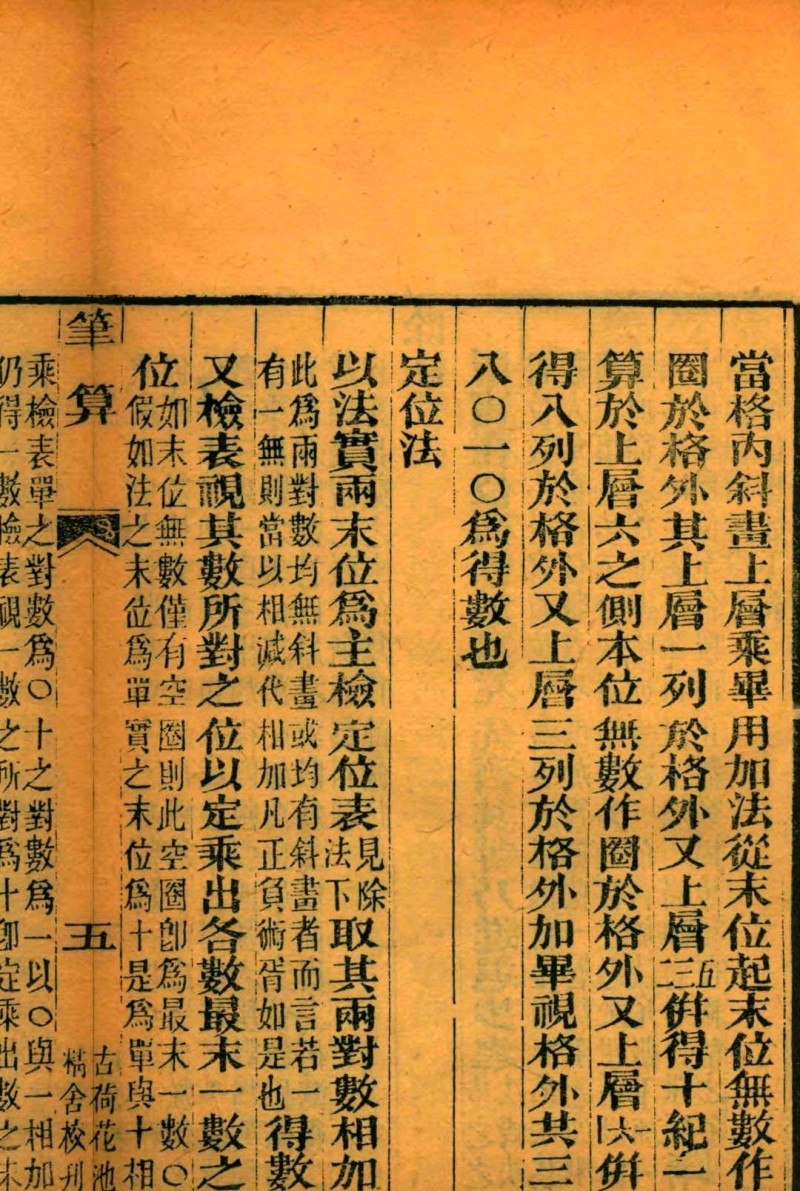 當格內斜畫上層乘畢用加法從末位起末位無數作
圈於格外其上層一列於格外又上層五三併得十紀一
算於上層六之側本位無數作圈於格外又上層一六一併
得八列於格外又上層三列於格外加畢視格外共三
八〇一〇爲得數也
定位法
以法實兩末位爲主檢定位表見除法下取其兩對數相加
此爲兩對數均無斜畫或均有斜畫者而言若一
有一無則當以相減代相加凡正負術胥如是也
得數
又檢表視其數所對之位以定乘出各數最末一數之
位
如末位無數僅有空圈則此空圈卽爲最末一數〇
假如法之末位爲單實之末位爲十是爲單與十相
筆算
五
古荷花池
精舍校刊
乘檢表單之對數爲〇十之對數爲一以〇與一相加
仍得一數檢表視一數之所對爲十卽定乘出數之末